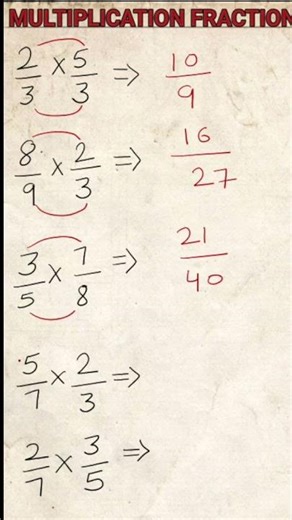 MULTIPLICATION FRACTION
2/3 × 5/3 ⇒ 10/9
8/9 × 2/3 ⇒ 16/27
3/5 × 7/8 ⇒ 21/40
5/7 × 2/3 ⇒
2/7 × 3/5 ⇒